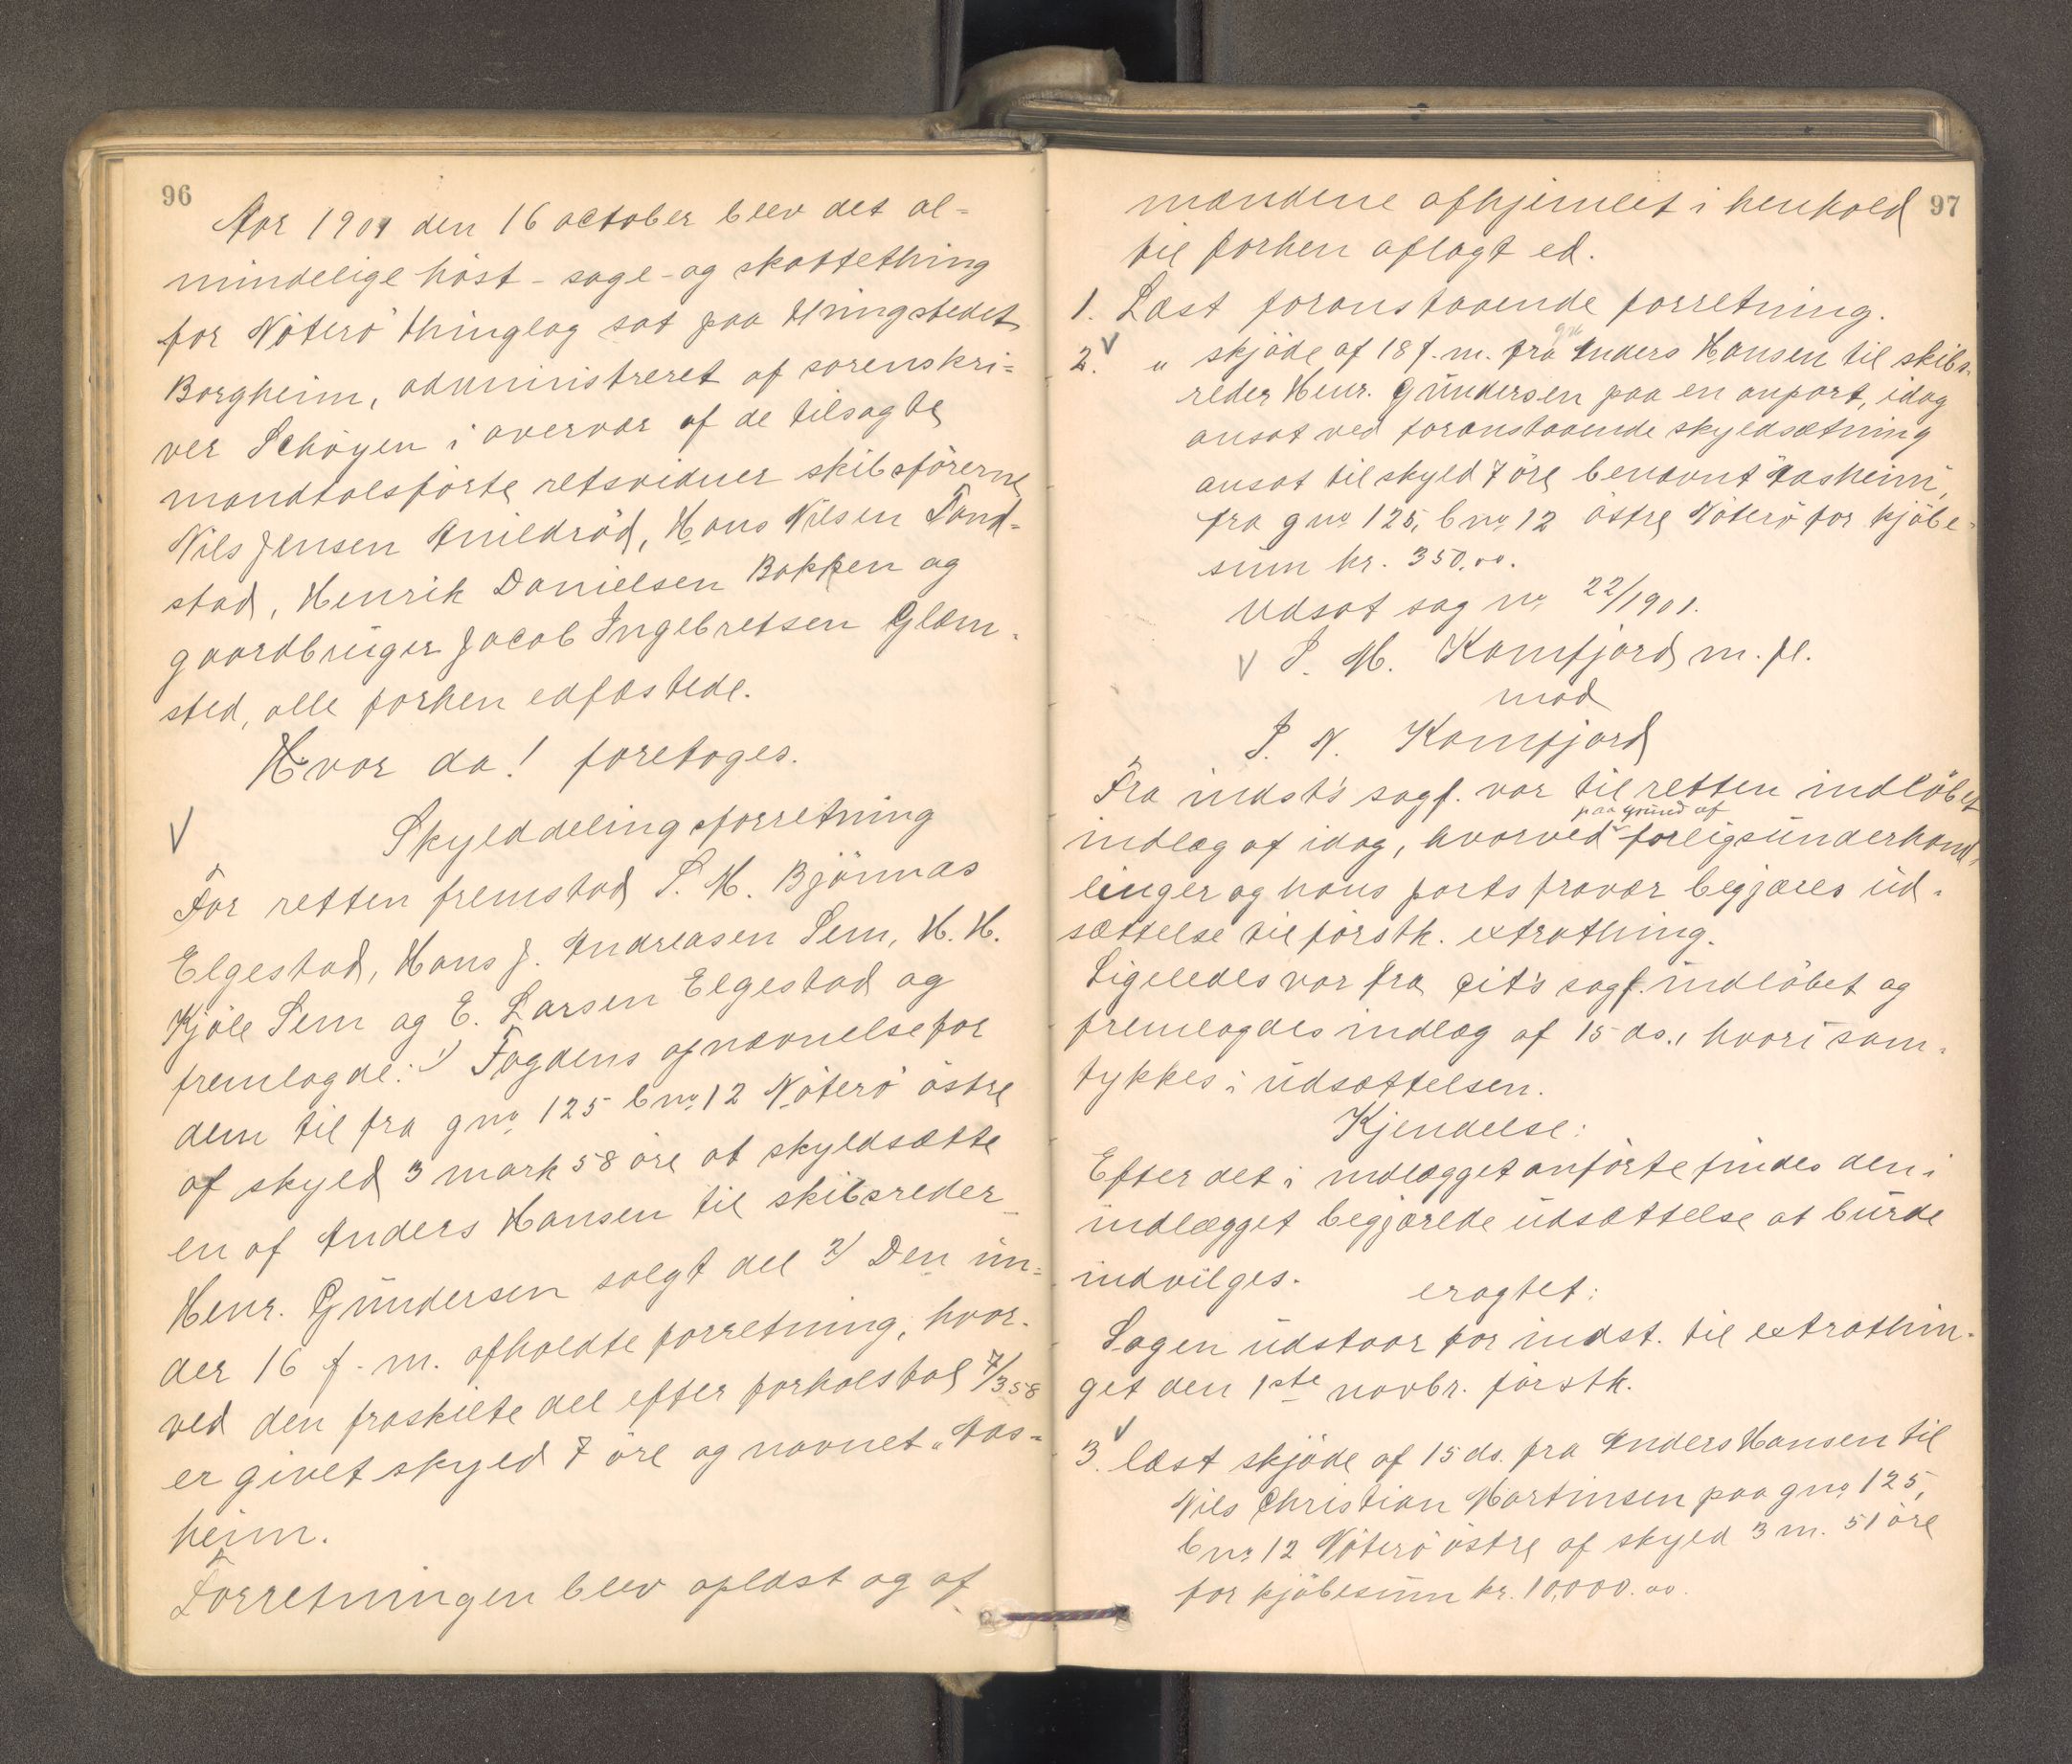 96
Aar 1901 den 16 october blev det al-
mindelige höst- sage- og skattething
for Nöterö thinglag sat paa thingstedet
Borgheim, administreret af sorenskri-
ver Schöyen i overvær af de tilsagte
mandtalsförte retsvidner skibsförerne
Nils Jensen Amildröd, Hans Nilsen Tand-
stad, Henrik Danielsen Bakken og
gaardbruger Jacob Ingebretsen Glæm-
sted, alle forhen edfæstede.
Hvor da! foretoges.
V
Skylddelingsforretning
For retten fremstod S. M. Bjönnæs
Elgestad, Hans J. Andreasen Sem, H. H.
Kjöle Sem og E. Larsen Elgestad og
fremlagde: 1) Fogdens opnævnelse for
dem til fra gno. 125 bno. 12 Nöterö östre
af skyld 3 mark 58 öre at skyldsætte
en af Anders Hansen til skibsreder
Henr. Gundersen solgt del 2) Den un-
der 16 f. m. afholdte forretning, hvor-
ved den fraskilte del efter forholstal 7/358
er givet skyld 7 öre og navnet „Aas-
heim.
Forretningen blev oplæst og af
97
mændene afhjemlet i henhold
til forhen aflagt ed.
1. Læst foranstaaende forretning.
V
2. " skjöde af 18 f. m. fra Anders Hansen til skibs-
reder Henr. Gundersen paa en anpart, idag
ansat ved foranstaaende skyldsætning
ansat til skyld 7 öre benævnt "Aasheim",
fra gno. 125, bno. 12 östre Nöterö for kjöbe-
sum kr. 350.00.
Udsat sag no. 22/1901.
V S. M. Kamfjord m. fl.
mod
S. N. Kamfjord
Fra indst's sagf. var til retten indlöbet
paa grund af
indlæg af idag, hvorved forligsunderhand-
linger og hans parts fravær begjæres ud-
sættelse til förstk. extrathing.
Ligeledes var fra cit's sagf. indlöbet og
fremlagdes indlæg af 15 ds., hvori sam-
tykkes i udsættelsen.
Kjendelse:
Efter det i indlægget anförte findes den i
indlægget begjærede udsættelse at burde
indvilges.
eragtet:
Sagen udstaar for indst. til extrathin-
get den 1ste novbr. förstk.
V
3. læst skjöde af 15 ds. fra Anders Hansen til
Nils Christian Martinsen paa gno. 125,
bno. 12 Nöterö östre af skyld 3 m. 51 öre
for kjöbesum kr. 10,000.00.